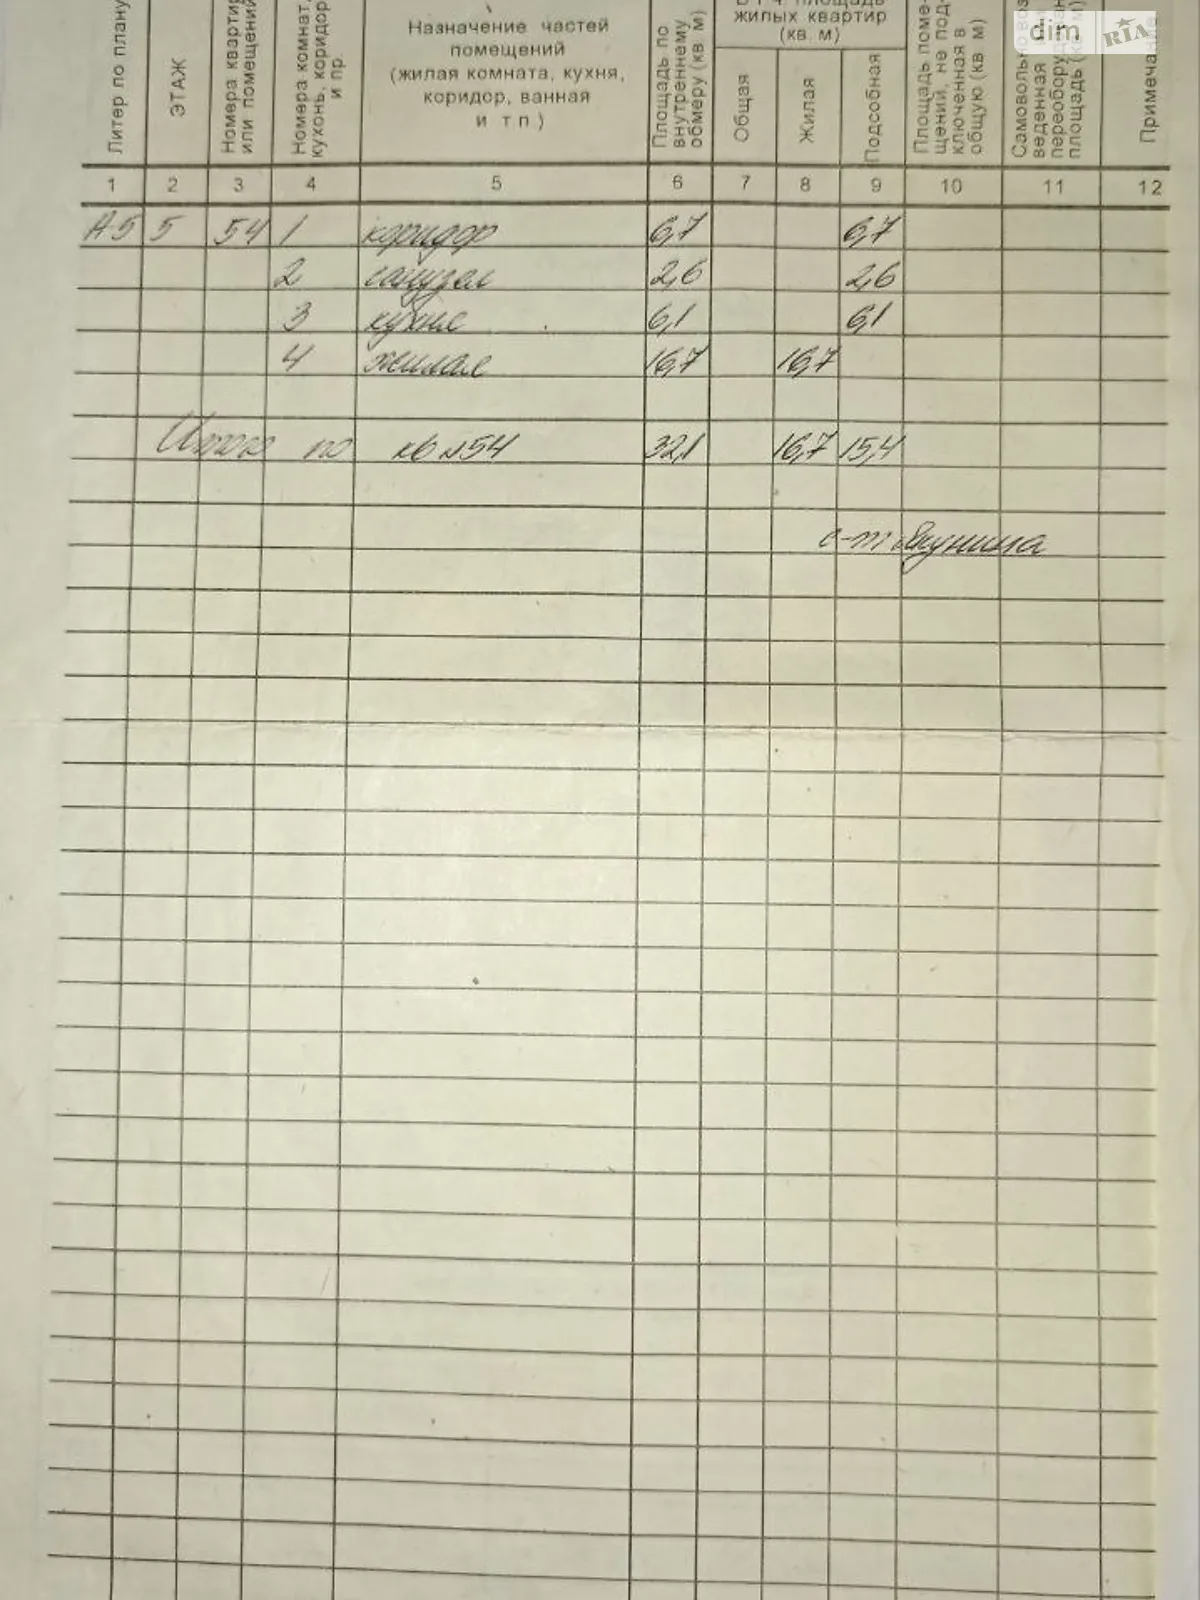 dim RIA
Литер по плану
ЭТАЖ
Номера квартир
или помещений
Номера комнат,
кухонь, коридор
и пр.
Назначение частей
помещений
(жилая комната, кухня,
коридор, ванная
и т п )
Площадь по
внутреннему
обмеру (кв м)
В т ч площадь
жилых квартир
(кв м)
Общая
Жилая
Подсобная
Площадь поме-
щений, не под-
ключенная в
общую (кв м)
Самовольно воз
веденная
переобору
площадь (
Примечание
1 2 3 4 5 6 7 8 9 10 11 12
А5 5 54 1 коридор 6,7 6,7
2 санузел 2,6 2,6
3 кухня 6,1 6,1
4 жилая 16,7 16,7
Итого по кв №54 32,1 16,7 15,4